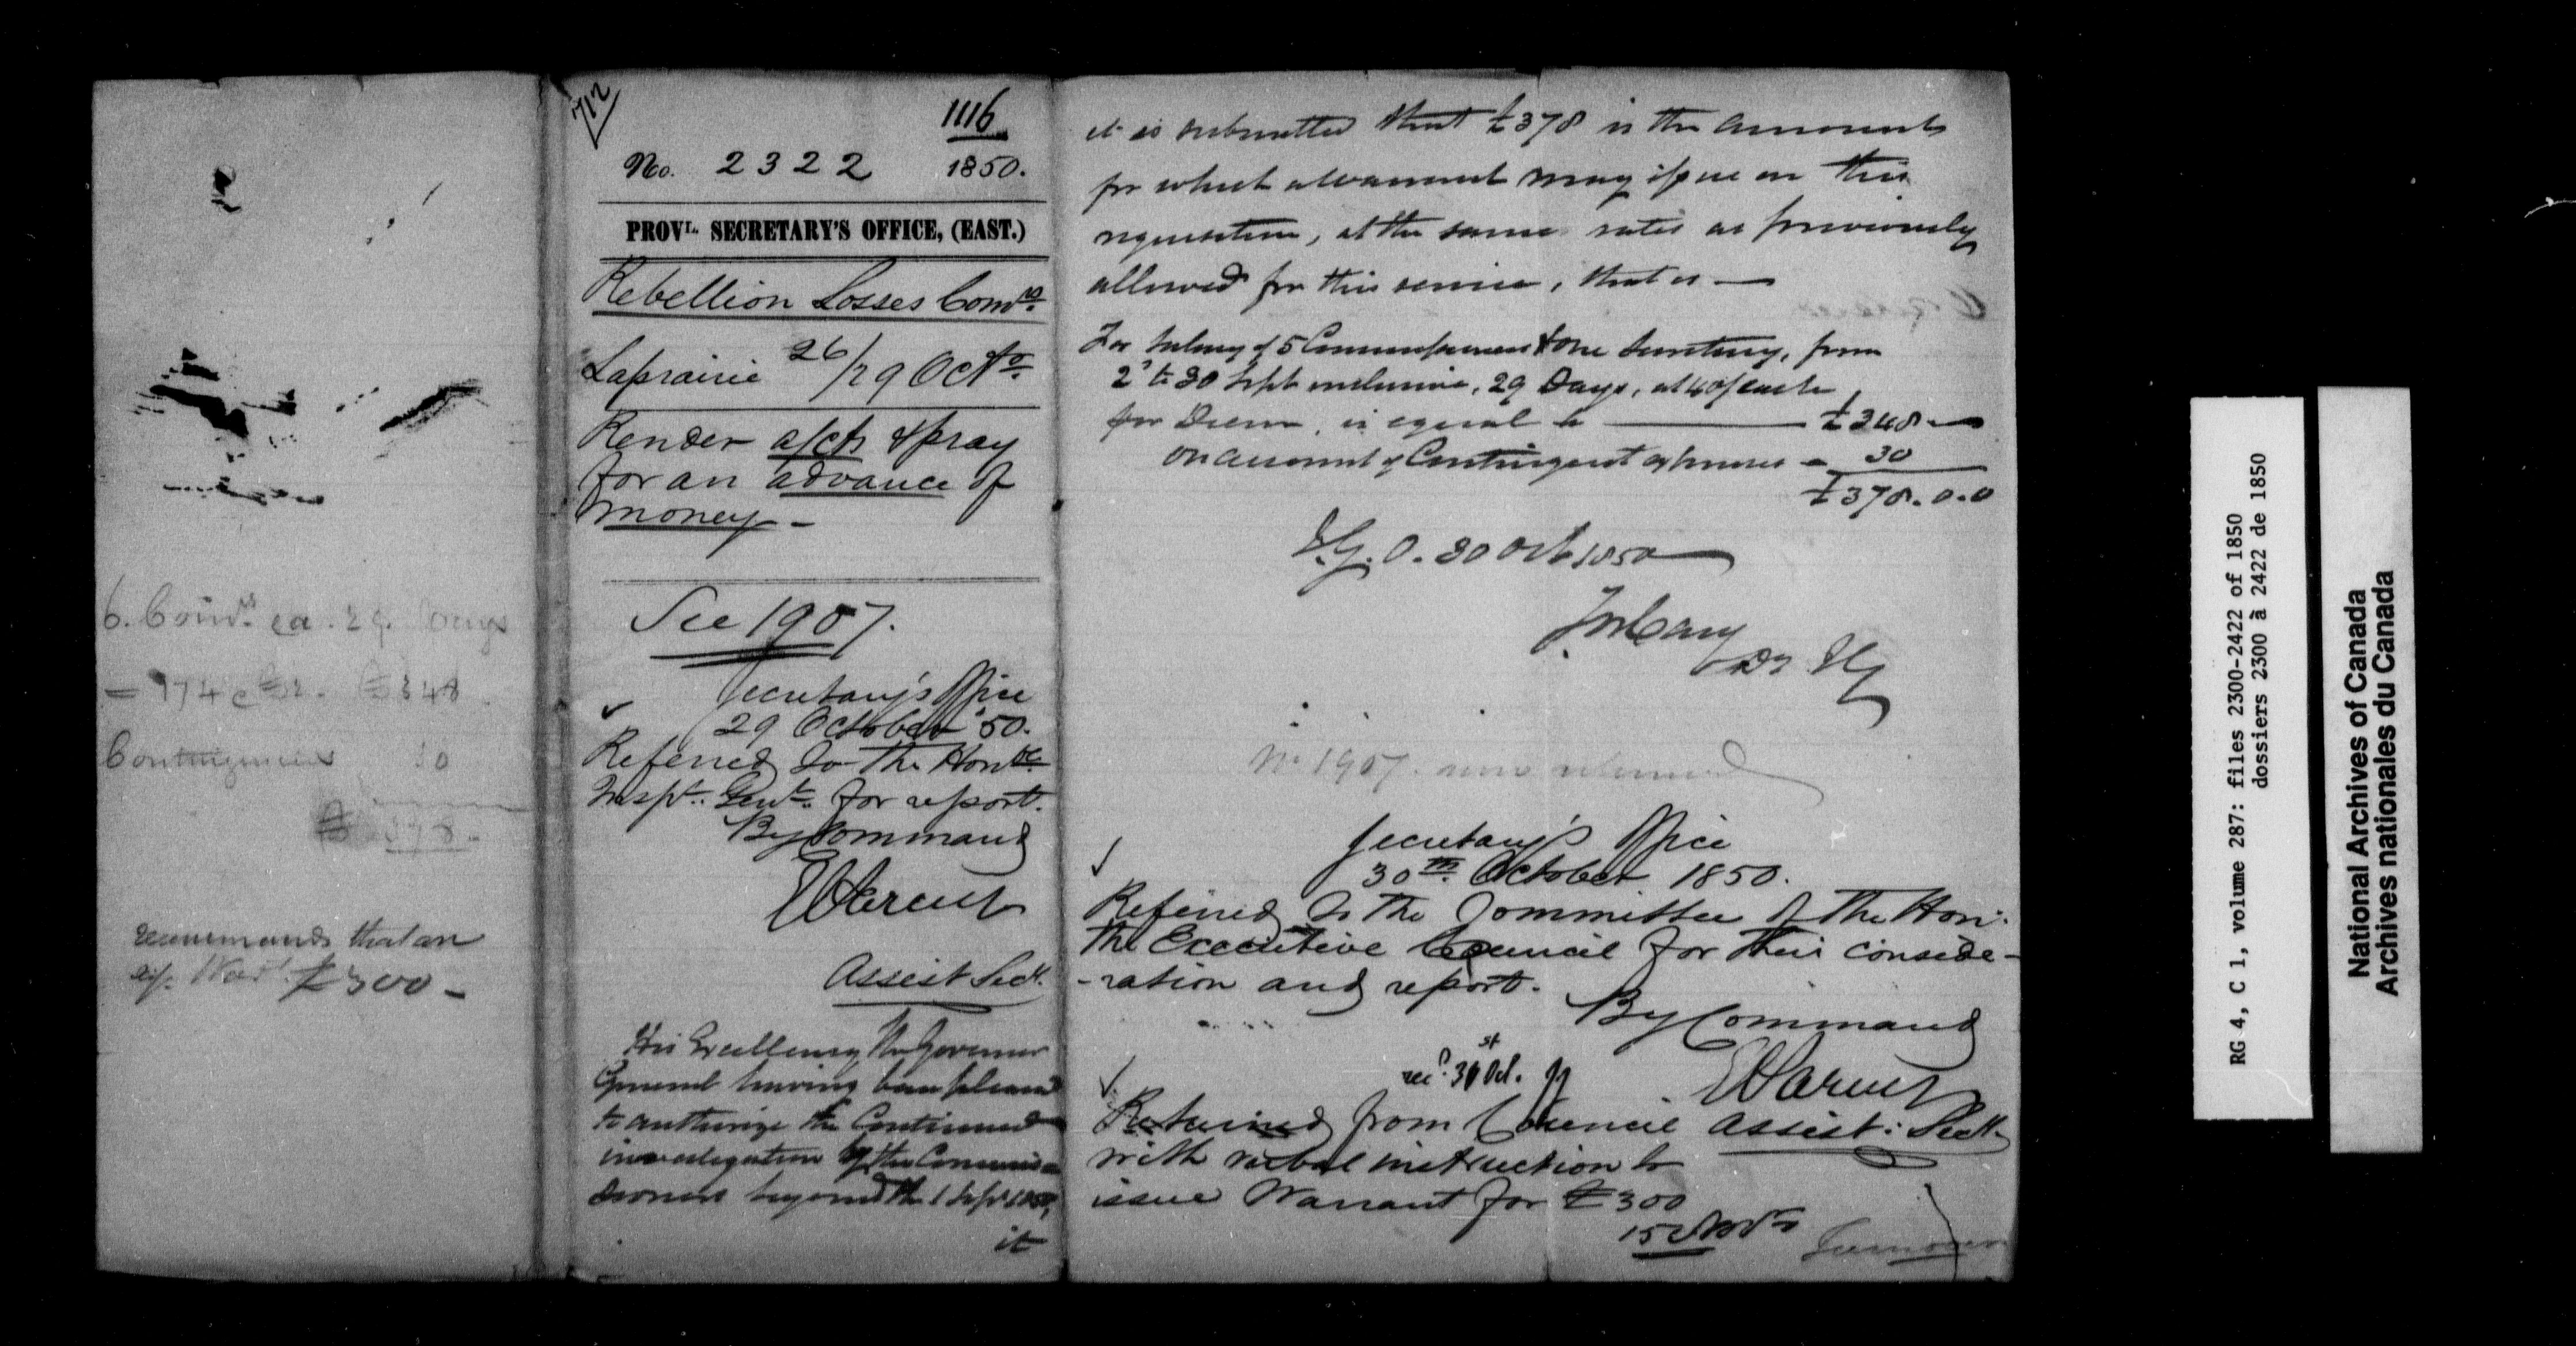 6. Com.rs ea. 29. Days
= 174 @ £2. £348
Contingencies 30
£ 378.
recommends that an
£300 -
712
1116
No. 2322 1850.
PROVL. SECRETARY'S OFFICE, (EAST.)
Rebellion Losses Comrs.
Laprairie 26/29 Octo.
Render a/cts & pray
for an advance of
money -
See 1907.
Secretary's Office
29 October '50.
Referred to the Honble.
Inspr. Genl. for report.
By Command
E Parent
Assist Secy.
His Excellency the Governor
General having been pleased
to authorize the Continued
investigation of the Commis-
sioners beyond the 1 Sept 1850,
it
it is submitted that £378 is the amount
for which a warrant may issue on this
requisition, at the same rates as previously
allowed for this service, that is —
For Salary of 5 Commissioners & one Secretary, from
2d to 30 Sept inclusive, 29 Days, at 40/ each
per Diem, is equal to — £348 —
on account of Contingent expenses - 30
£378.0.0
I.G.O. 30 Oct 1850
Jos Cary
Dy I G
No 1907. now returned
Secretary's Office
30th. October 1850.
Referred to the Committee of the Hon:
the Executive Council for their conside-
-ration and report.
By Command
E Parent
Assist: Secy.
recd. 31st Oct.
Returned from Council
with verbal instruction to
issue Warrant for £300
15 Nov
RG 4, C 1, volume 287: files 2300-2422 of 1850
dossiers 2300 à 2422 de 1850
National Archives of Canada
Archives nationales du Canada